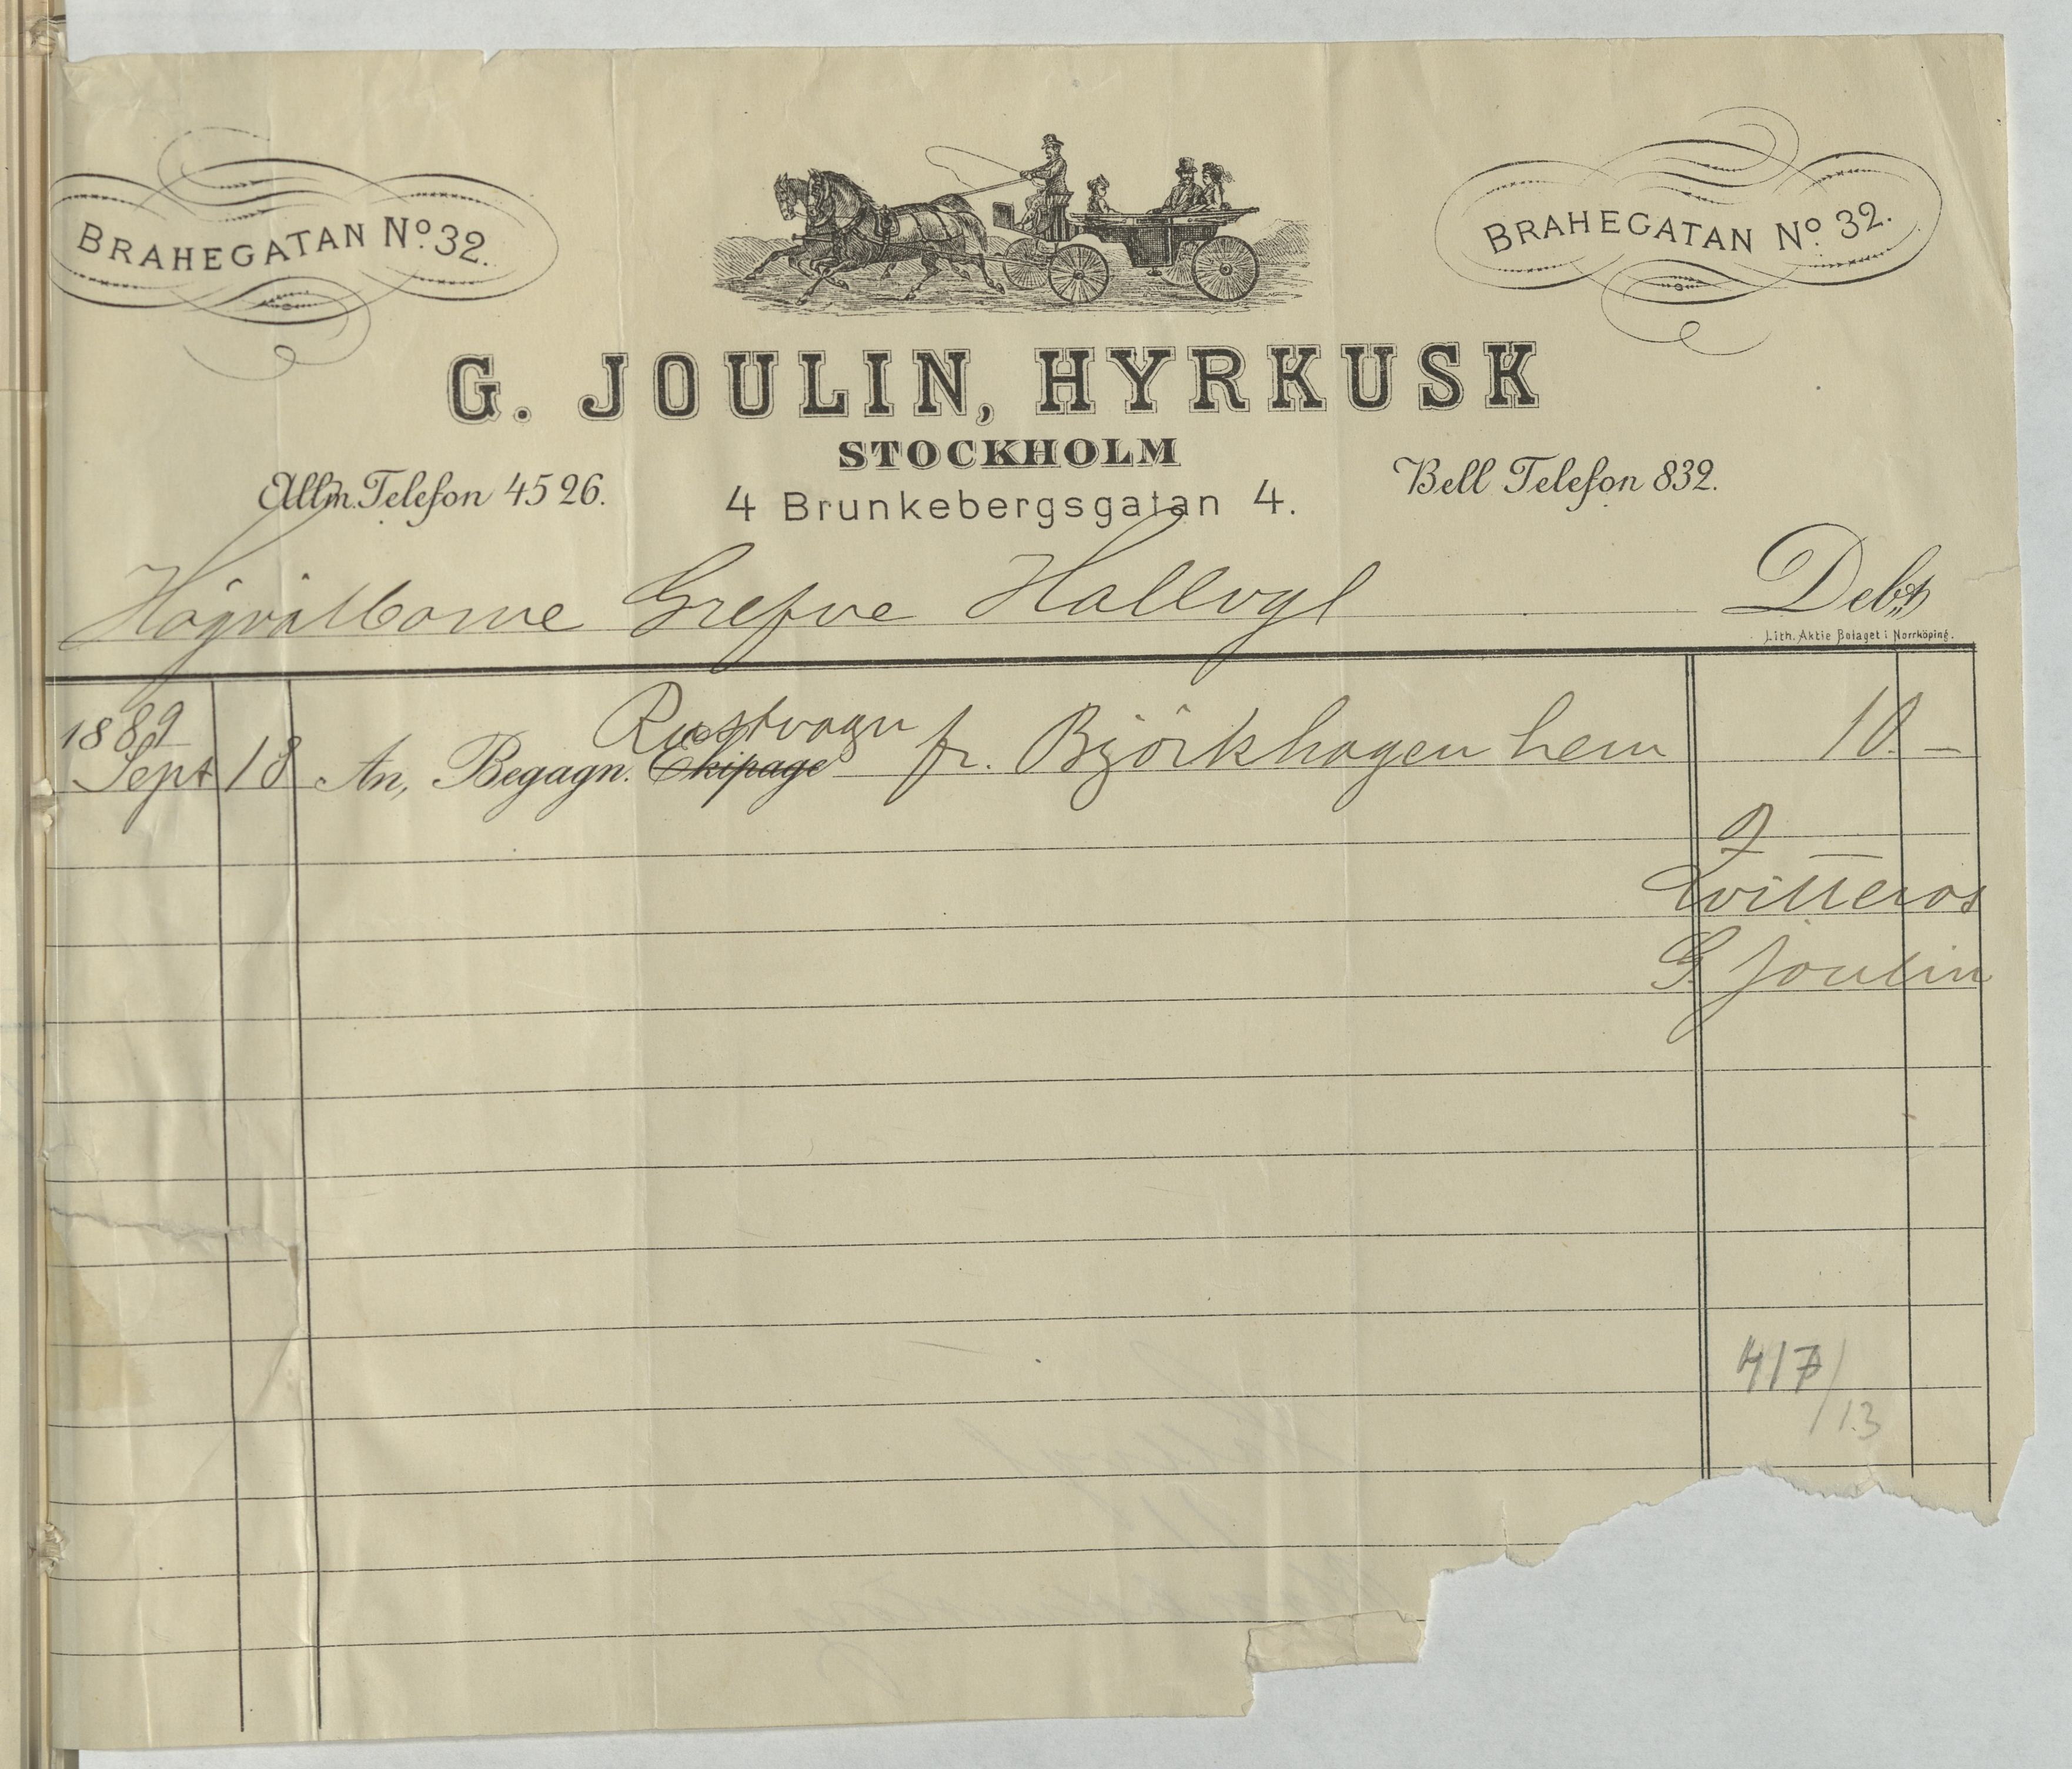 BRAHEGATAN No. 32.
BRAHEGATAN No. 32.
G. JOULIN, HYRKUSK
STOCKHOLM
Allm. Telefon 4526.
4 Brunkebergsgatan 4.
Bell Telefon 832.
Högvälborne Grefve Hallvyl
Debet
Lith. Aktie Bolaget i Norrköping.
1889
Rustvagn
Sept 18 An, Begagn. Ekipage fr. Björkhagen hem 10. —
Qvitteras
G. Joulin
417/13